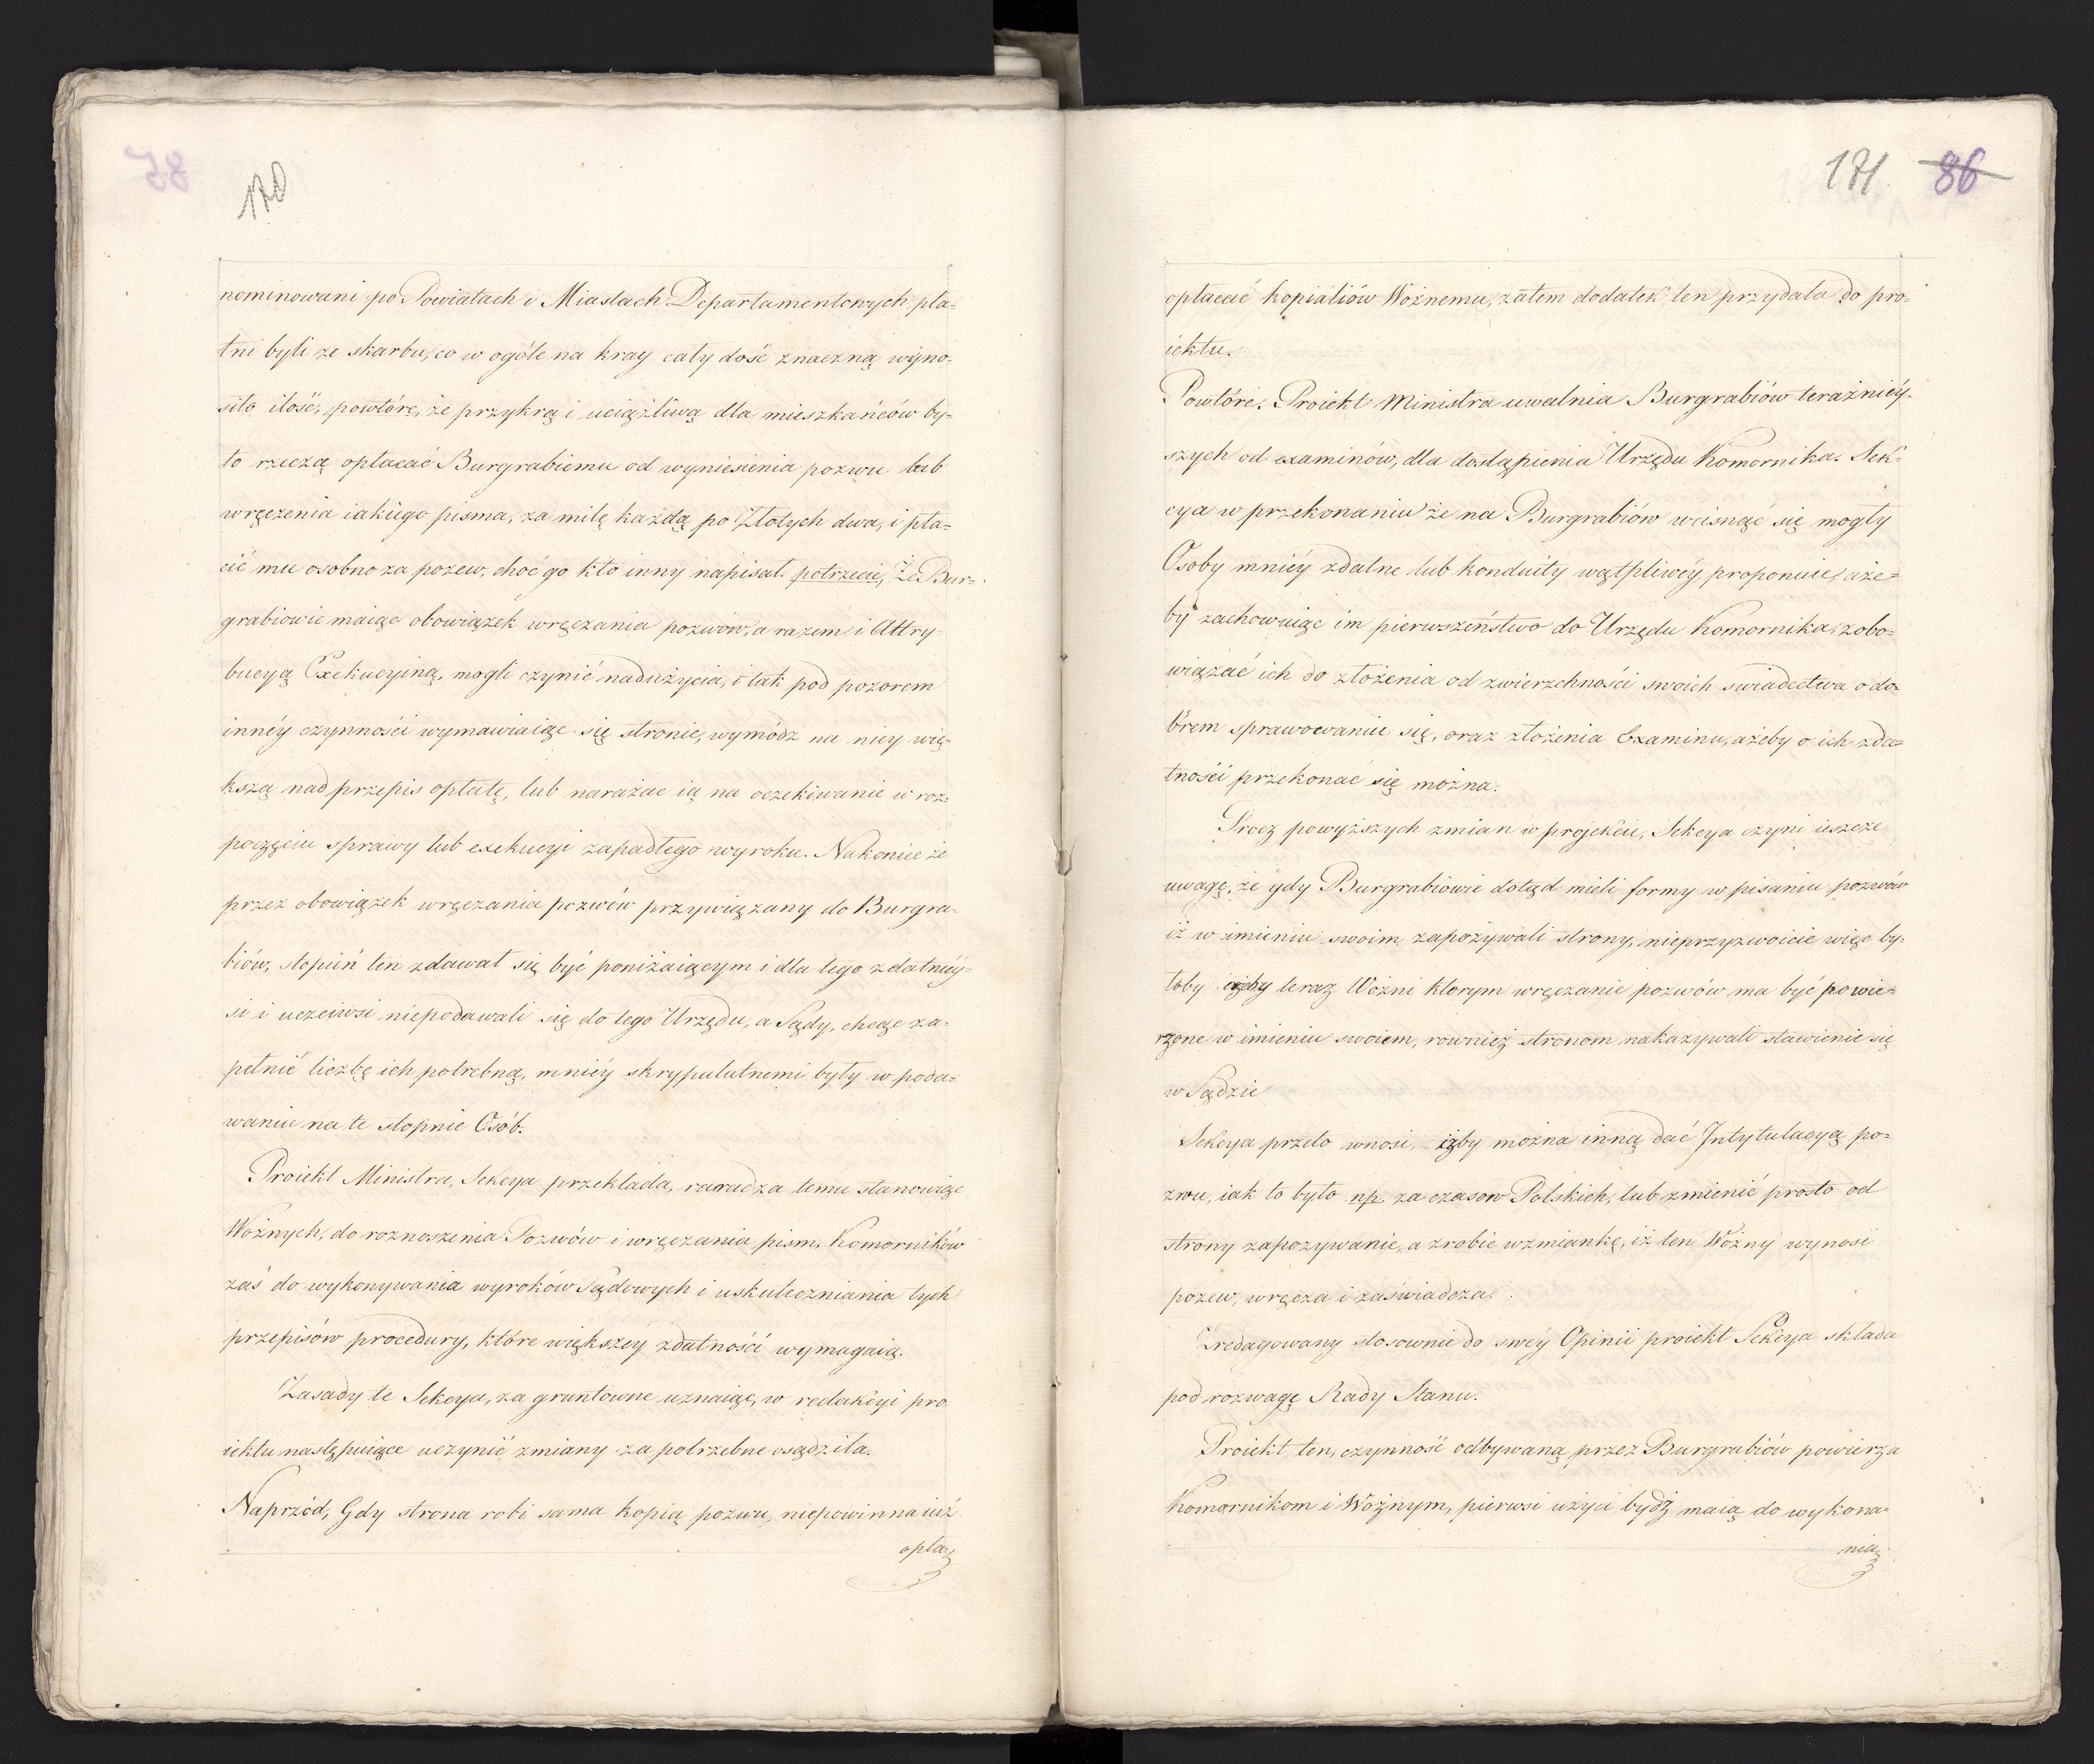 170
nominowani po Powiatach i Miastach Departamentowych pła=
tni byli ze skarbu, co w ogóle na kray cały dość znaczną wyno=
siło ilość, powtóre, że przykrą i uciążliwą dla mieszkańców by=
ło rzeczą opłacać Burgrabiemu od wyniesienia pozwu lub
wręczenia iakiego pisma, za milę każdą po Złotych dwa, i pła=
cić mu osobno za pozew, choć go kto inny napisał. potrzecie, Że Bur=
grabiowie maiąc obowiązek wręczania pozwów, a razem i Attry=
bucyą Exekucyiną, mogli czynić nadużycia, i tak pod pozorem
innéy czynności wymawiaiąc się stronie, wymódz na niey wię=
kszą nad przepis opłatę, lub narażac ią na oczekiwanie w roz=
poczęciu sprawy lub exekucyi zapadłego wyroku. Nakoniec że
przez obowiązek wręczania pozwów przywiązany do Burgra=
biów, stopień ten zdawał się być poniżaiącym i dla tego zdatniéy=
si i uczciwsi niepodawali się do tego Urzędu, a Sądy, chcąc za=
pełnić liczbę ich potrzebną, mniéy skrypulatnemi były w poda=
waniu na te stopnie Osób.
Proiekt Ministra, Sekcya przekłada, zaradza temu stanowiąc
Woźnych, do roznoszenia Pozwów i wręczania pism, Komorników
zaś do wykonywania wyroków Sądowych i uskuteczniania tych
przepisów procedury, które większey zdatności wymagaią.
Zasady te Sekcya, za gruntowne uznaiąc, w redakcyi pro
iektu następuiące uczynić zmiany za potrzebne osądziła.
Naprzód, Gdy strona robi sama kopią pozwu, niepowinna iuż
opła=
171 86
opłacać kopialiów Woźnemu, zatem dodatek ten przydała do pro=
iektu.
Powtóre. Proiekt Ministra uwalnia Burgrabiów teraźniéy=
szych od examinów, dla dostąpienia Urzędu Komornika. Sek=
cya w przekonaniu że na Burgrabiów wcisnąć się mogły
Osoby mniéy zdatne lub konduity wątpliwéy, proponuie, aże=
by zachowuiąc im pierwszeństwo do Urzędu Komornika, zobo=
wiązać ich do złożenia od zwierzchności swoich swiadectwa o do=
brem sprawowaniu się, oraz złożenia Examinu, ażeby o ich zda=
tności przekonać się można.
Procz powyższych zmian w projekcie, Sekcya czyni ieszcze
uwagę, że gdy Burgrabiowie dotąd mieli formy w pisaniu pozwów
iż w imieniu swoim zapozywali strony, nieprzyzwoicie więc by=
łoby ażeby teraz Woźni ktorym wręczanie pozwów ma być powie=
rzone w imieniu swoiem, rownież stronom nakazywali stawienie się
w Sądzie
Sekcya przeto wnosi, iżby można inną dać Intytulacyą po=
zwu, iak to było np. za czasow Polskich, lub zmienić prosto od
strony zapozywanie, a zrobić wzmiankę, iż ten Woźny wynosi
pozew, wręcza i zaświadcza.
Zredagowany stosownie do swéy Opinii proiekt Sekcya składa
pod rozwagę Rady Stanu.
Proiekt ten, czynność odbywaną przez Burgrabiów powierza
Komornikom i Woźnym, pierwsi użyci bydź maią do wykona=
nia